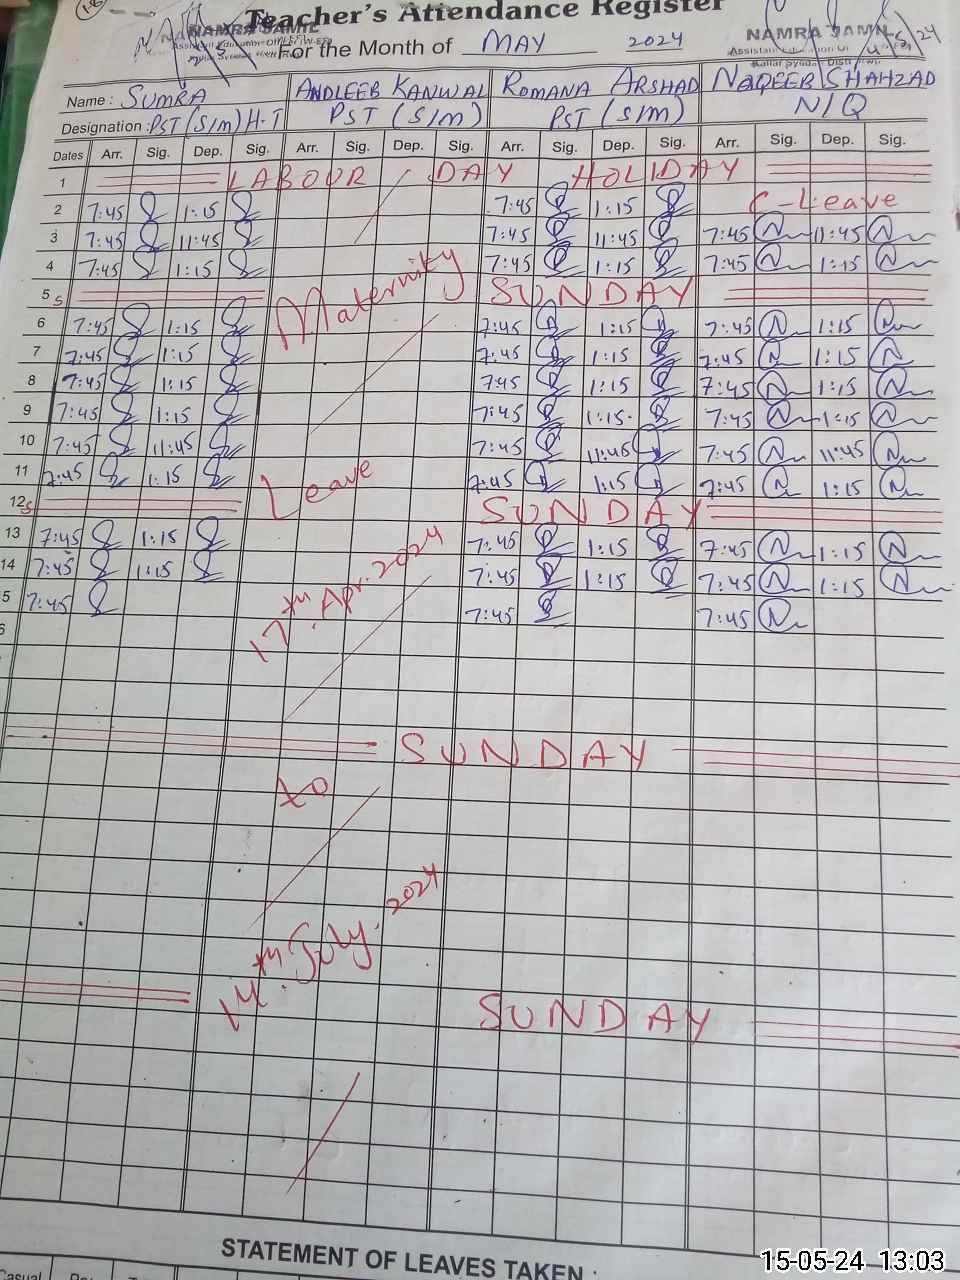 Teacher's Attendance Register
For the Month of MAY 2024
NAMRA SAMIL
NAMRA SAMIL
Name : SUMRA ANDLEEB KANWAL ROMANA ARSHAD NAQEEB SHAHZAD
Designation : PST (S/M) H-T PST (S/M) PST (S/M) N/Q
Dates Arr. Sig. Dep. Sig. Arr. Sig. Dep. Sig. Arr. Sig. Dep. Sig. Arr. Sig. Dep. Sig.
1 LABOUR DAY HOLIDAY
2 7:45 1:15 7:45 1:15 C-Leave
3 7:45 11:45 7:45 11:45 7:45 11:45
4 7:45 1:15 7:45 1:15 7:45 1:15
5 S SUNDAY
Maternity
6 7:45 1:15 7:45 1:15 7:45 1:15
7 7:45 1:15 7:45 1:15 7:45 1:15
8 7:45 1:15 7:45 1:15 7:45 1:15
9 7:45 1:15 7:45 1:15 7:45 1:15
10 7:45 11:45 7:45 11:45 7:45 11:45
11 7:45 1:15 7:45 1:15 7:45 1:15
Leave
12 S SUNDAY
13 7:45 1:15 7:45 1:15 7:45 1:15
14 7:45 1:15 7:45 1:15 7:45 1:15
5 7:45 7:45 7:45
17th Apr. 2024
6
SUNDAY
to
14th July. 2024
SUNDAY
STATEMENT OF LEAVES TAKEN :
Casual
15-05-24 13:03